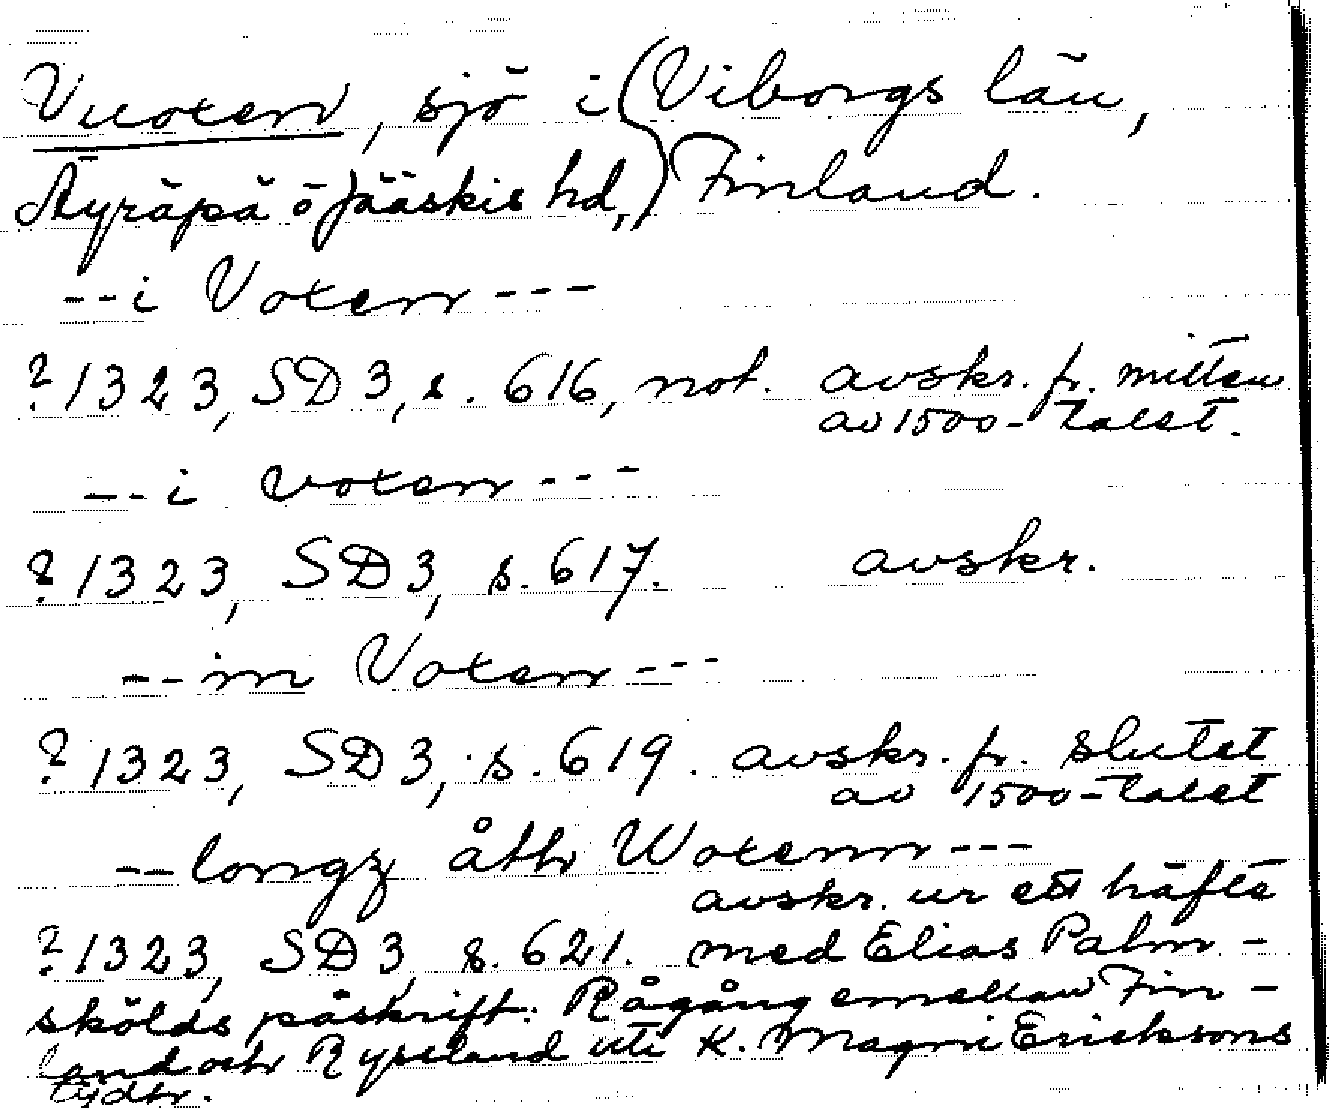 Vuoxen, sjö i (Viborgs län,
Äyräpä o Jääskis hd,) Finland.
--i Voxen---
?1323, SD3, s. 616, not. avskr. fr. mitten
av 1500-talet.
--i voxen---
?1323, SD3, s. 617. avskr.
--in Voxen---
?1323, SD3, s. 619. avskr. fr. slutet
av 1500-talet
--longz åth Woxenn---
avskr. ur ett häfte
?1323, SD3, s. 621. med Elias Palm-
skölds påskrift: Rågång emellan Fin-
land och Rysseland uti K. Magni Ericksons
tydhr.